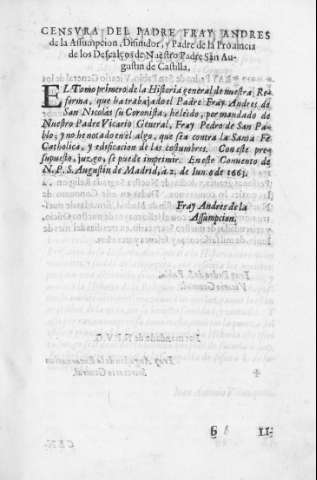 CENSVRA DEL PADRE FRAY ANDRES
de la Assumpcion, Difinidor, y Padre de la Prouincia
de los Descalços de Nuestro Padre San Au-
gustin de Castilla.
EL Tomo primero de la Historia general de nuestra Re-
forma, que ha trabajado el Padre Fray Andres de
San Nicolas su Coronista, he leido, por mandado de
Nuestro Padre Vicario General, Fray Pedro de San Pa-
blo; y no he notado en el algo, que sea contra la Santa Fè
Catholica, y edificacion de las costumbres. Con este pre-
supuesto, juzgo, se puede imprimir. En este Conuento de
N. P. S. Augustin de Madrid, à 2. de Iunio de 1663.
Fray Andres de la
Assumpcion.
LI-